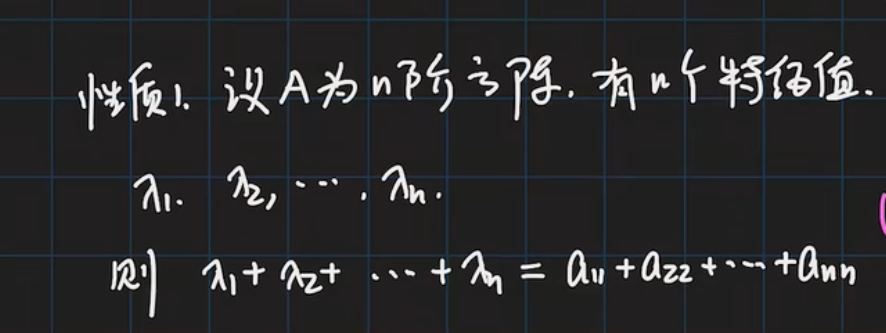 性质1. 设A为n阶方阵. 有n个特征值.
λ₁. λ₂, ⋯ . λₙ.
则 λ₁+ λ₂+ ⋯ + λₙ = a₁₁ + a₂₂ + ⋯ + aₙₙ